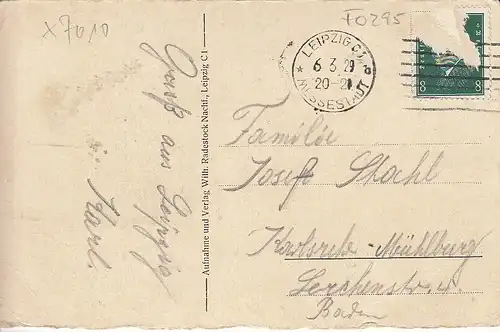 X7010
F0295
LEIPZIG C1
6.3.29
20-21
* MESSESTADT
8 8
Gruß aus Leipzig
Karl.
Aufnahme und Verlag Wilh. Radestock Nachf., Leipzig C1
Familie
Josef Stahl
Karlsruhe-Mühlburg
Lerchenstr.
Baden